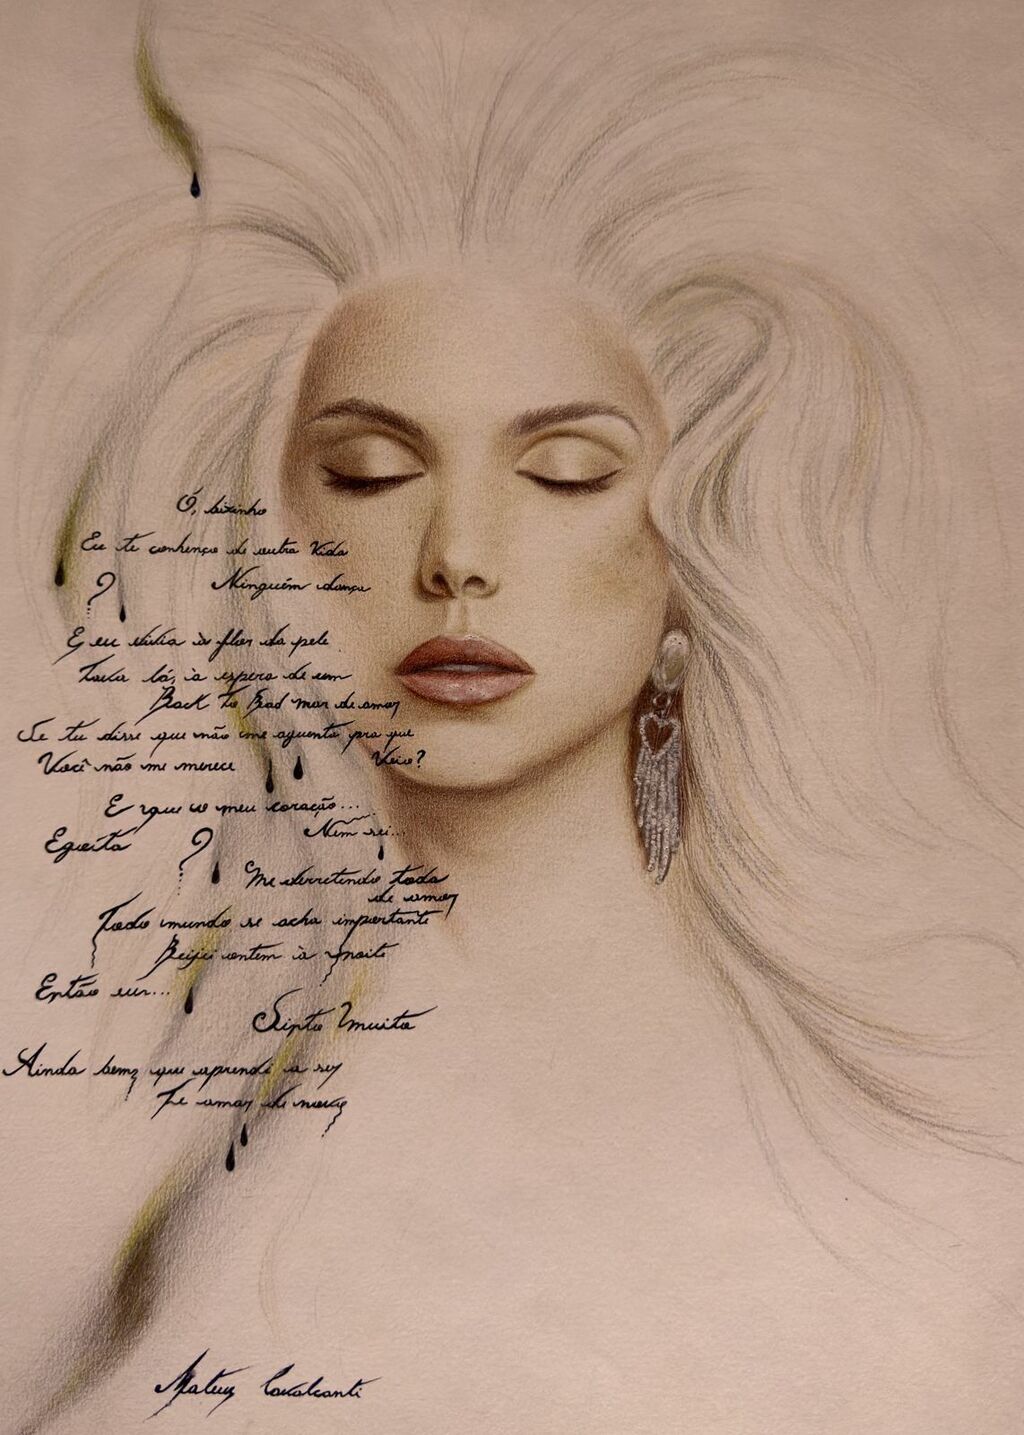 Ó, bixinho
Eu te conhenço de outra Vida
? Ninguém dança
E eu vivia à flor da pele
Tava lá, à espera de um
Back to Bad mar de amor
Se tu disse que não me aguenta pra que
Você não me merece Veio?
E que o meu coração...
Egoísta ? Nem sei...
Me derretendo toda
de amor
Todo mundo se acha importante
Beijei ontem à noite
Então eu...
Sinto Muito
Ainda bem que aprendi a ser
Te amar de novo
Mateus Cavalcanti